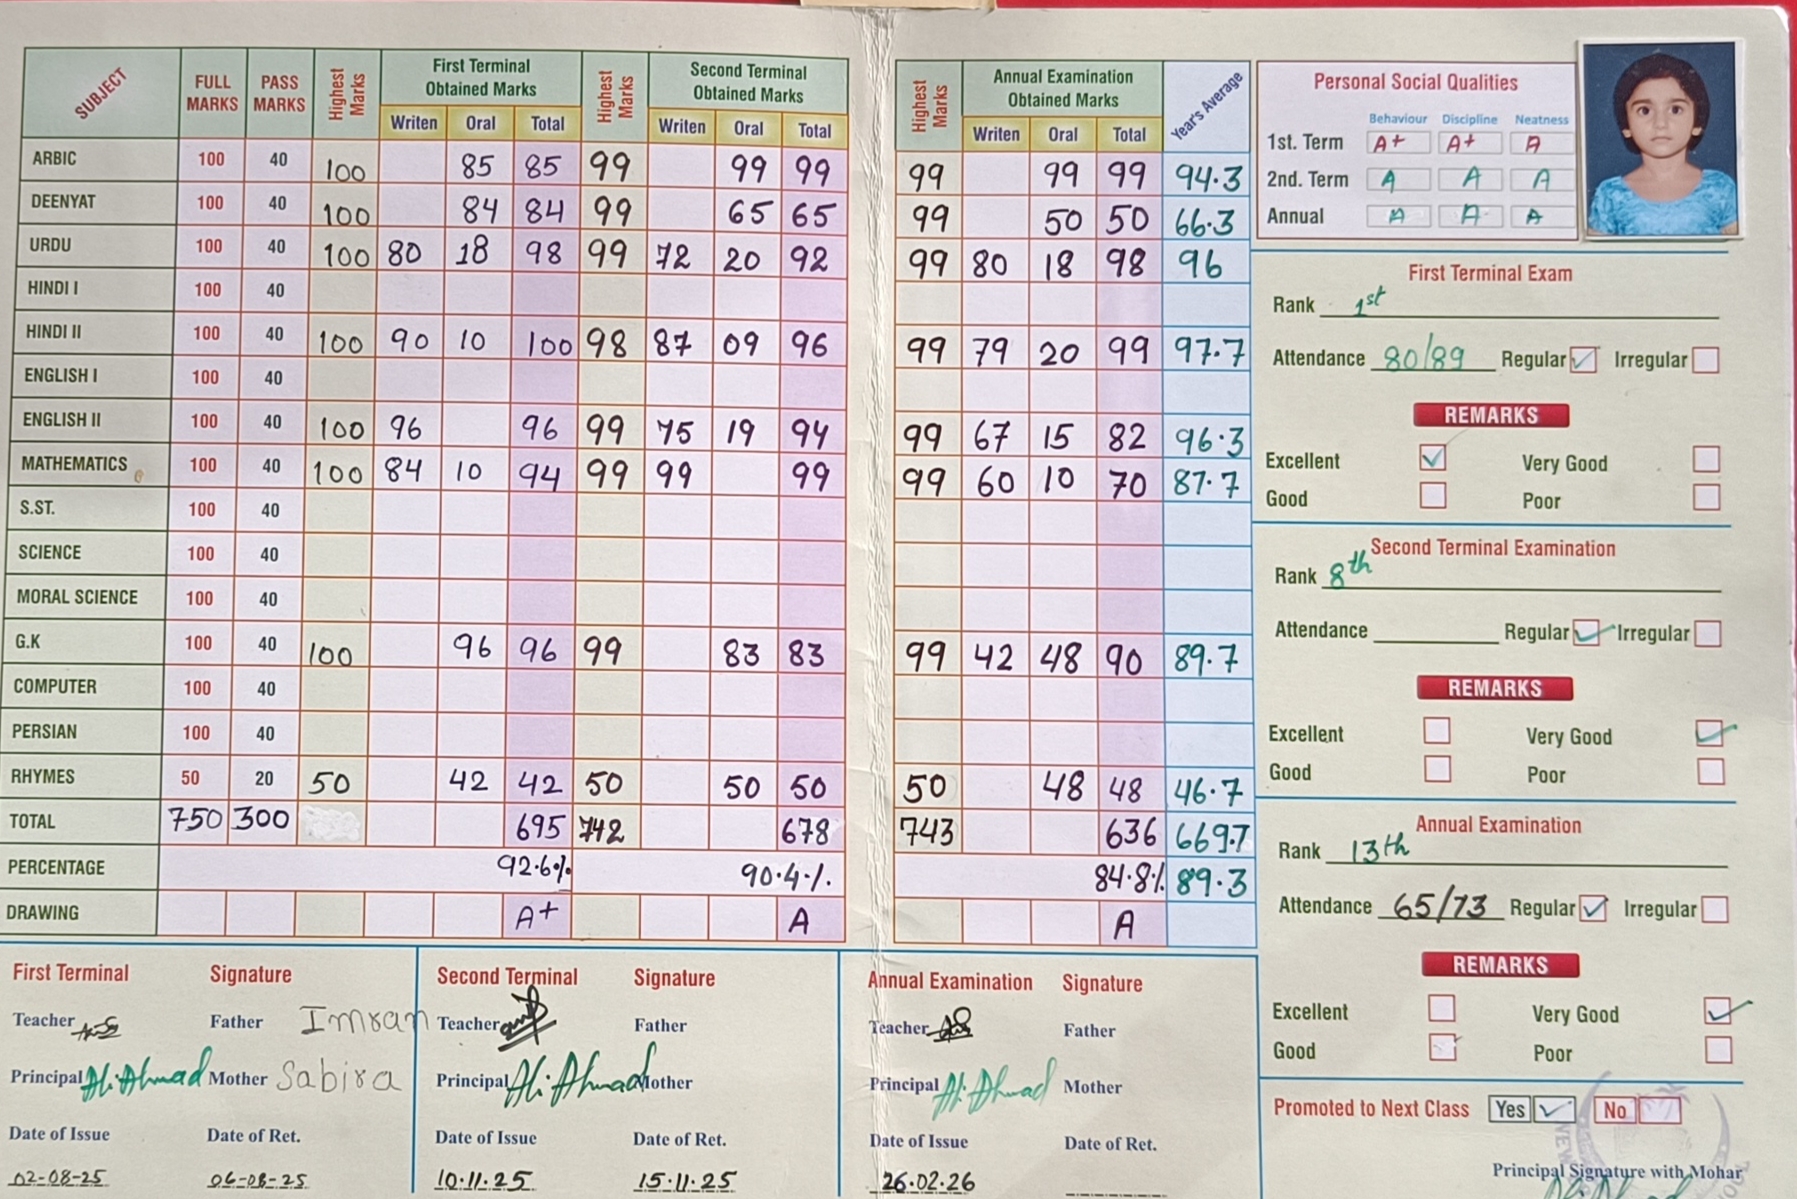 SUBJECT FULL MARKS PASS MARKS Highest Marks First Terminal Obtained Marks Highest Marks Second Terminal Obtained Marks Highest Marks Annual Examination Obtained Marks Year's Average
Writen Oral Total Writen Oral Total Writen Oral Total
ARBIC 100 40 100 85 85 99 99 99 99 99 99 94.3
DEENYAT 100 40 100 84 84 99 65 65 99 50 50 66.3
URDU 100 40 100 80 18 98 99 72 20 92 99 80 18 98 96
HINDI I 100 40
HINDI II 100 40 100 90 10 100 98 87 09 96 99 79 20 99 97.7
ENGLISH I 100 40
ENGLISH II 100 40 100 96 96 99 75 19 94 99 67 15 82 96.3
MATHEMATICS 100 40 100 84 10 94 99 99 99 99 60 10 70 87.7
S.ST. 100 40
SCIENCE 100 40
MORAL SCIENCE 100 40
G.K 100 40 100 96 96 99 83 83 99 42 48 90 89.7
COMPUTER 100 40
PERSIAN 100 40
RHYMES 50 20 50 42 42 50 50 50 50 48 48 46.7
TOTAL 750 300 695 742 678 743 636 669.7
PERCENTAGE 92.6% 90.4% 84.8% 89.3
DRAWING A+ A A
Personal Social Qualities
Behaviour Discipline Neatness
1st. Term A+ A+ A
2nd. Term A A A
Annual A A A
First Terminal Exam
Rank 1st
Attendance 80/89 Regular Irregular
REMARKS
Excellent Very Good
Good Poor
Second Terminal Examination
Rank 8th
Attendance Regular Irregular
REMARKS
Excellent Very Good
Good Poor
Annual Examination
Rank 13th
Attendance 65/73 Regular Irregular
REMARKS
Excellent Very Good
Good Poor
Promoted to Next Class Yes No
Principal Signature with Mohar
First Terminal Signature
Teacher Father Imran
Principal Ali Ahmad Mother Sabira
Date of Issue Date of Ret.
02-08-25 06-08-25
Second Terminal Signature
Teacher Father
Principal Ali Ahmad Mother
Date of Issue Date of Ret.
10.11.25 15.11.25
Annual Examination Signature
Teacher Father
Principal Ali Ahmad Mother
Date of Issue Date of Ret.
26.02.26